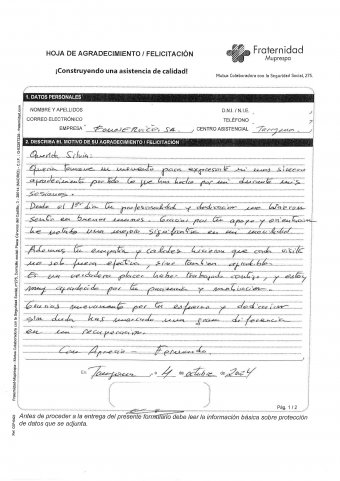 HOJA DE AGRADECIMIENTO / FELICITACIÓN
Fraternidad
Muprespa
¡Construyendo una asistencia de calidad!
Mutua Colaboradora con la Seguridad Social, 275
1. DATOS PERSONALES
NOMBRE Y APELLIDOS
D.N.I. / N.I.E.
CORREO ELECTRÓNICO
TELÉFONO
EMPRESA
CENTRO ASISTENCIAL
2. DESCRIBA EL MOTIVO DE SU AGRADECIMIENTO / FELICITACIÓN
Querida Silvia:
Quería tomarme un momento para expresarte mi más sincero
agradecimiento por todo lo que has hecho por mí durante mis
sesiones.
Desde el 1er día tu profesionalidad y dedicación me hicieron
sentir en buenas manos. Gracias por tu apoyo y orientación
he notado una mejora significativa en mi movilidad.
Además tu empatía y calidez hicieron que cada visita
no solo fuera efectiva, sino también agradable.
Es un verdadero placer haber trabajado contigo, y estoy
muy agradecido por tu paciencia y motivación.
Gracias nuevamente por tu esfuerzo y dedicación
sin duda has marcado una gran diferencia
en mi recuperación.
Con Aprecio - Fernando.
En Tarragona, a 4 de octubre de 2024
Pág. 1 / 2
Antes de proceder a la entrega del presente formulario debe leer la información básica sobre protección
de datos que se adjunta.